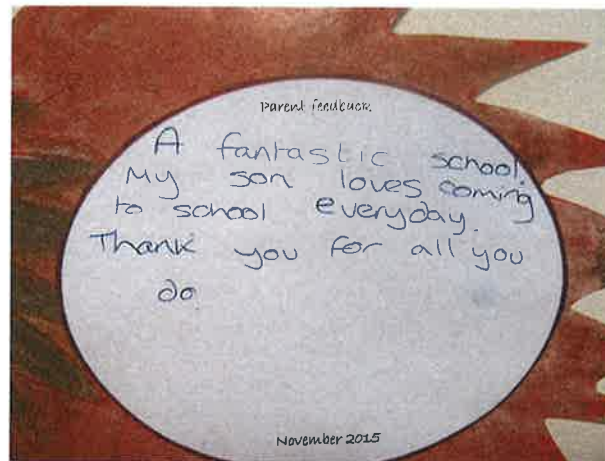 Parent feedback.
A fantastic school.
My son loves coming
to school everyday.
Thank you for all you
do
November 2015